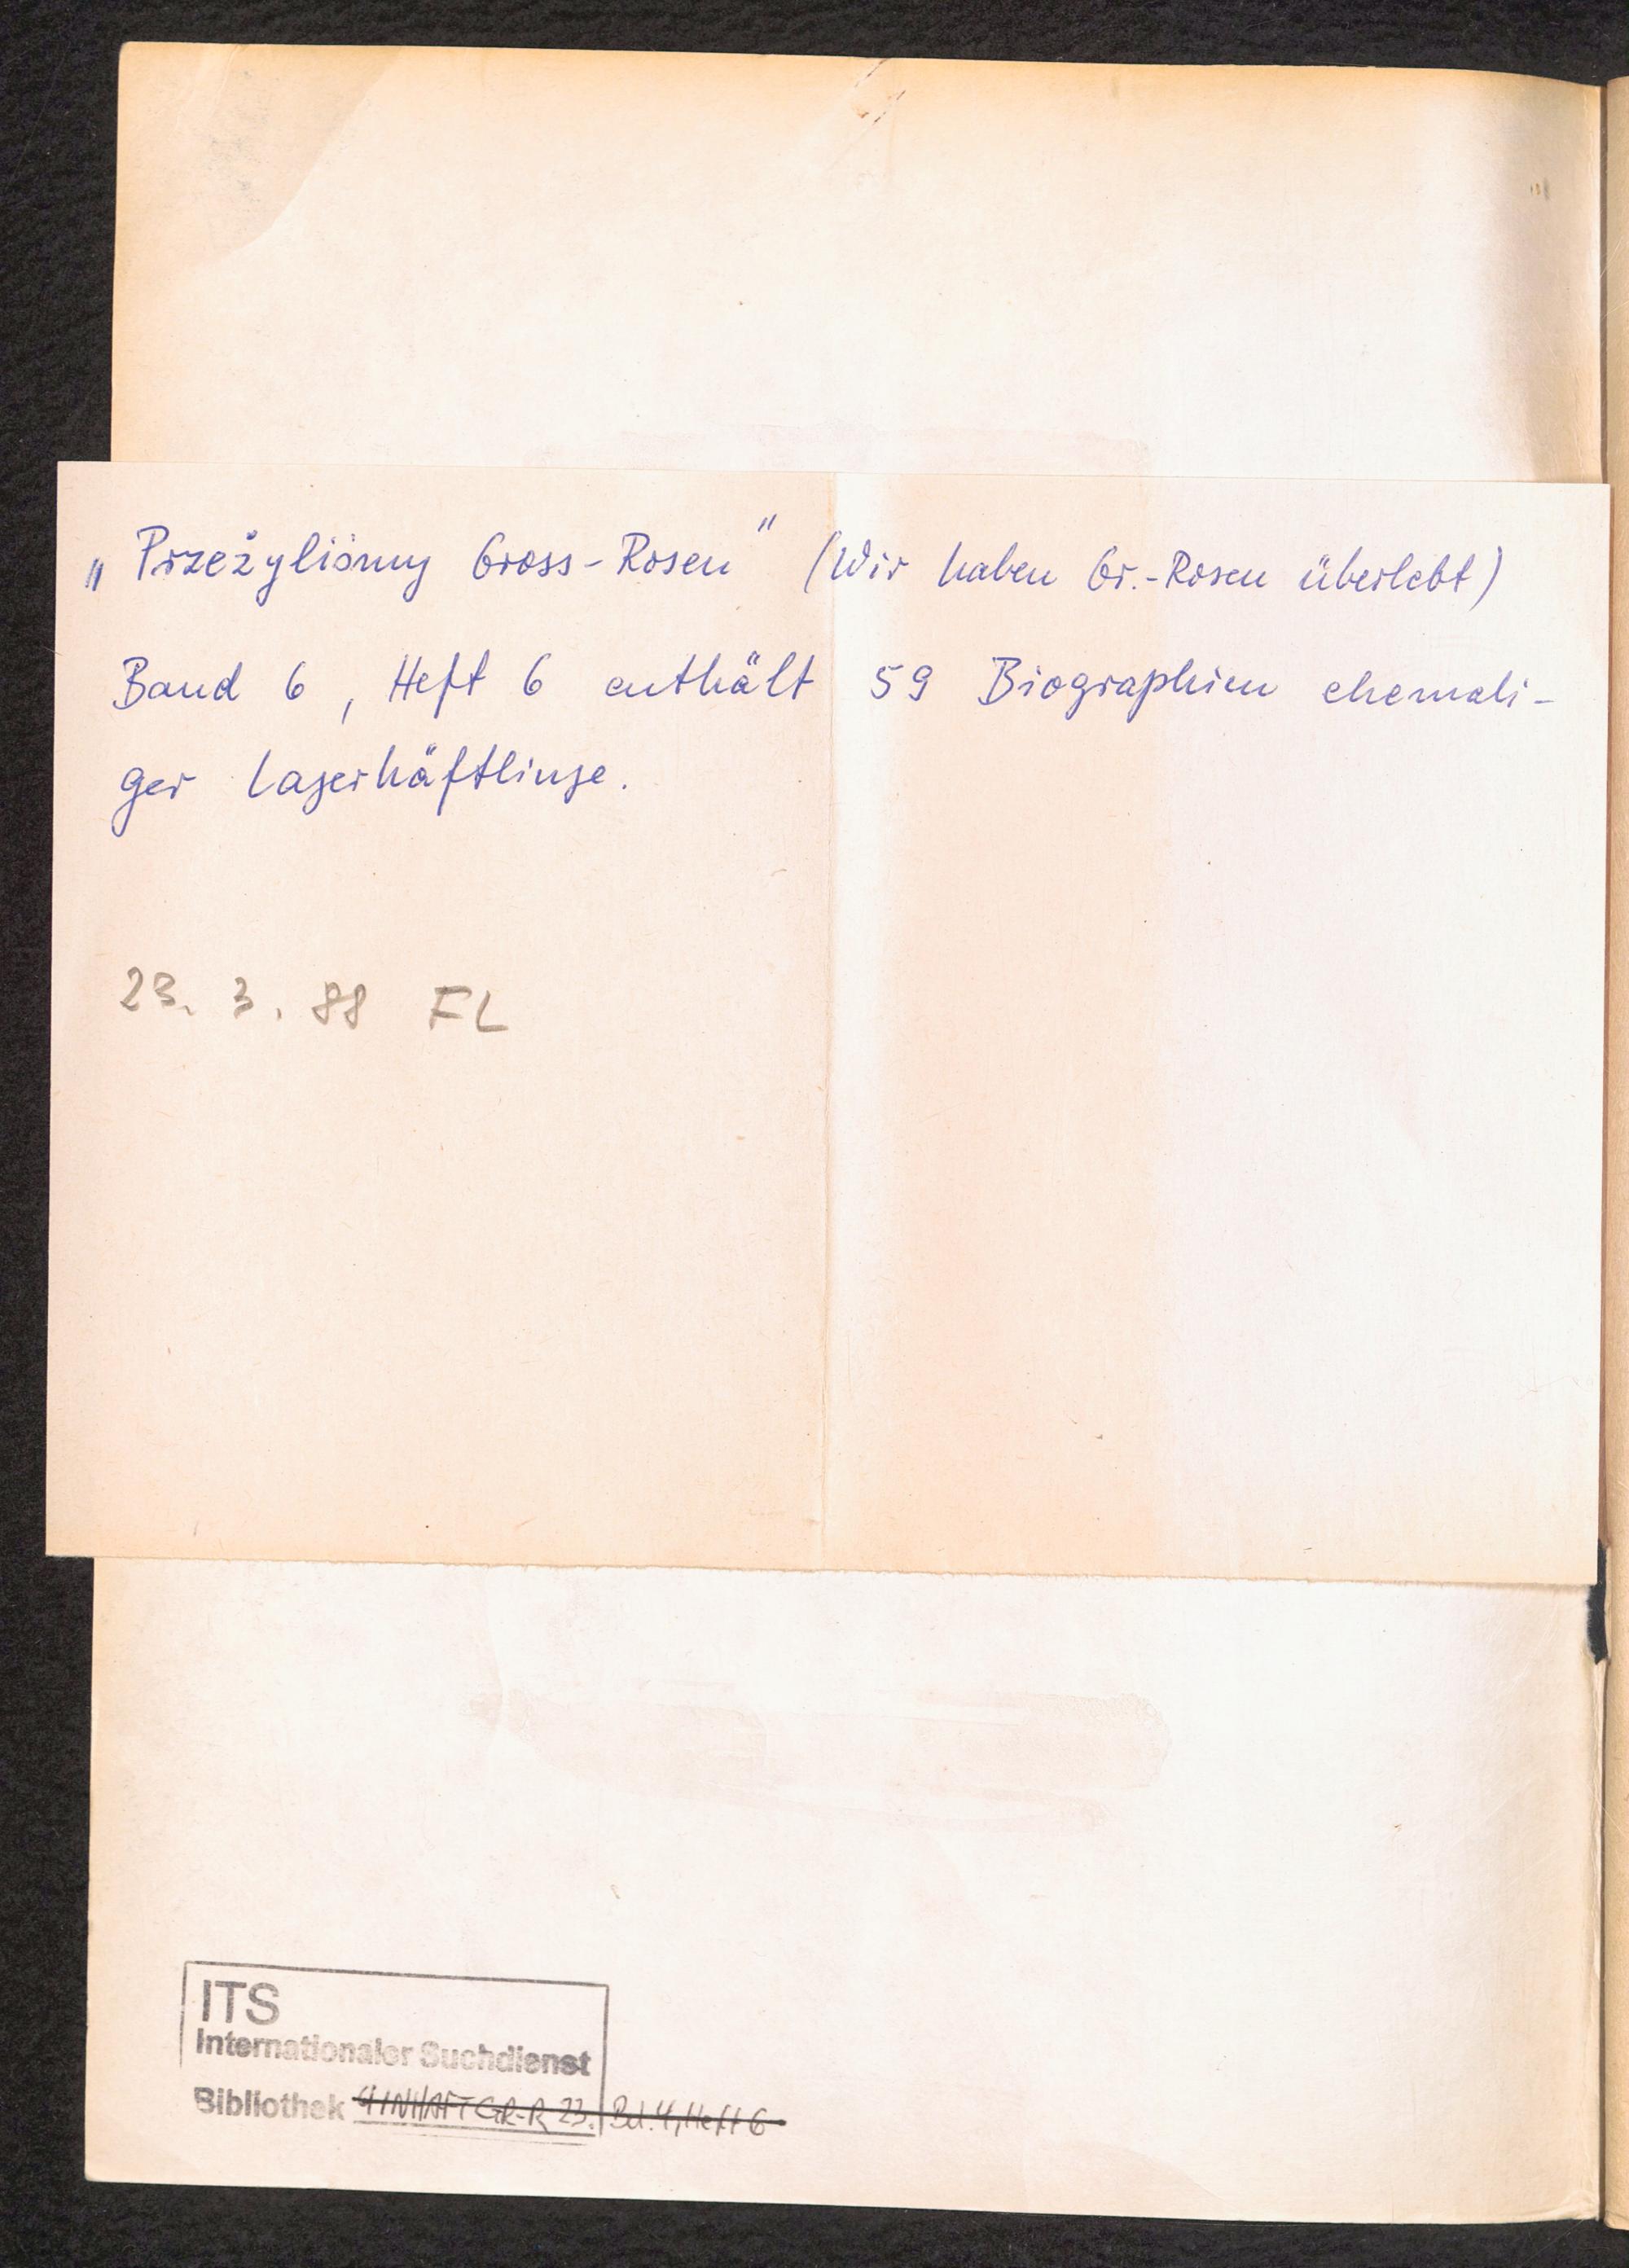 „Przeżyliśmy Gross-Rosen" (Wir haben Gr.-Rosen überlebt)
Band 6, Heft 6 enthält 59 Biographien ehemali-
ger Lagerhäftlinge.
23. 3. 88 FL
ITS
Internationaler Suchdienst
Bibliothek 4INHAFT GR-R 23. Bd. 4, Heft 6